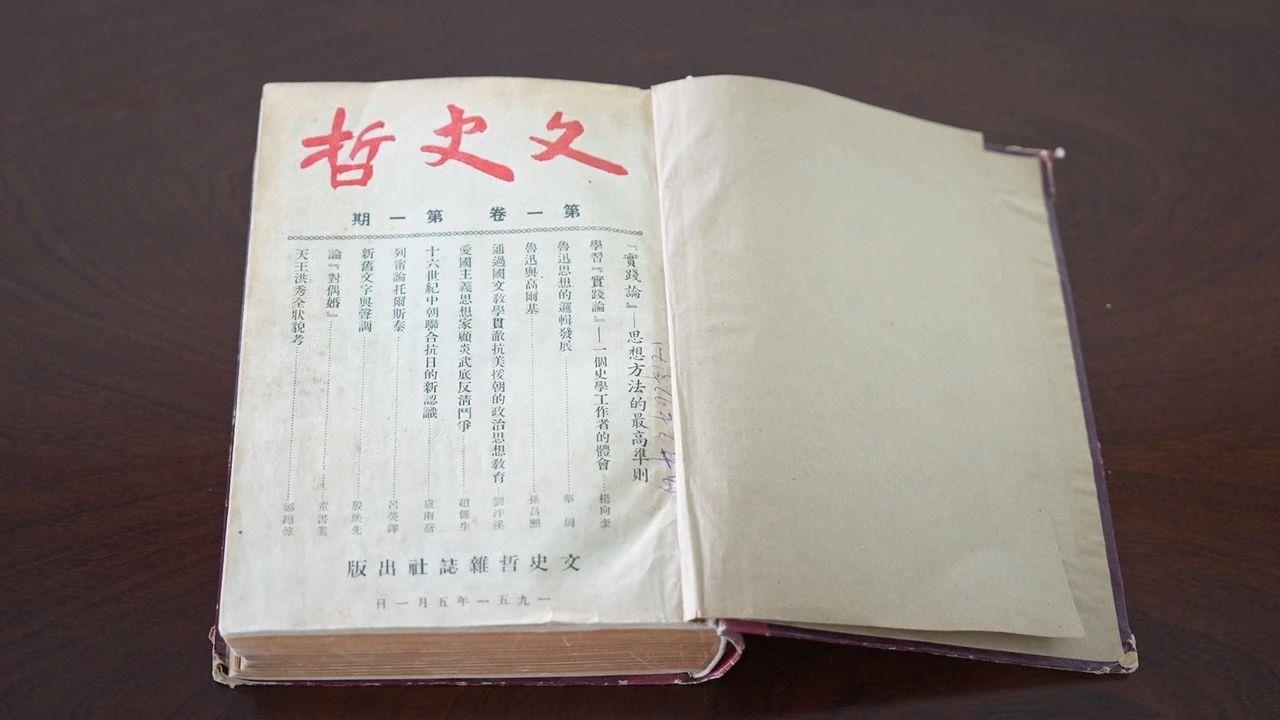 文史哲
第一卷 第一期
『實踐論』——思想方法的最高準則
學習『實踐論』——一個史學工作者的體會……楊向奎
魯迅思想的邏輯發展……華岡
魯迅與高爾基……孫昌熙
通過國文教學貫澈抗美援朝的政治思想教育……劉泮溪
愛國主義思想家顧炎武底反清鬥爭……趙儷生
十六世紀中朝聯合抗日的新認識……盧南喬
列甯論托爾斯泰……呂熒譯
新舊文字與聲調……殷煥先
論『對偶婚』……童書業
天王洪秀全狀貌考……鄭鶴聲
文史哲雜誌社出版
一九五一年五月一日